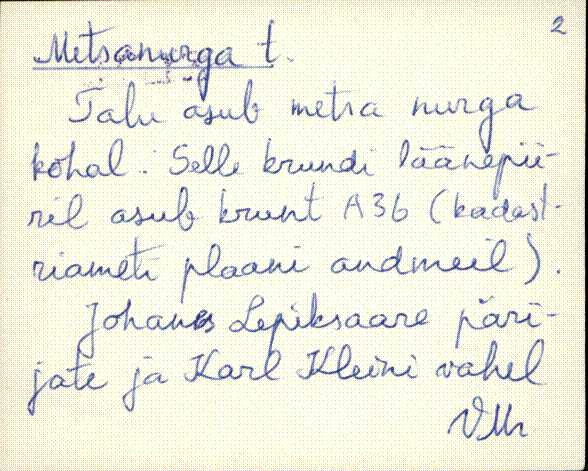 2
Metsanurga t.
Talu asub metsa nurga
kohal. Selle krundi läänepii-
ril asub krunt A36 (kadast-
riameti plaani andmeil).
Johannes Lepiksaare päri-
jate ja Karl Kleini vahel